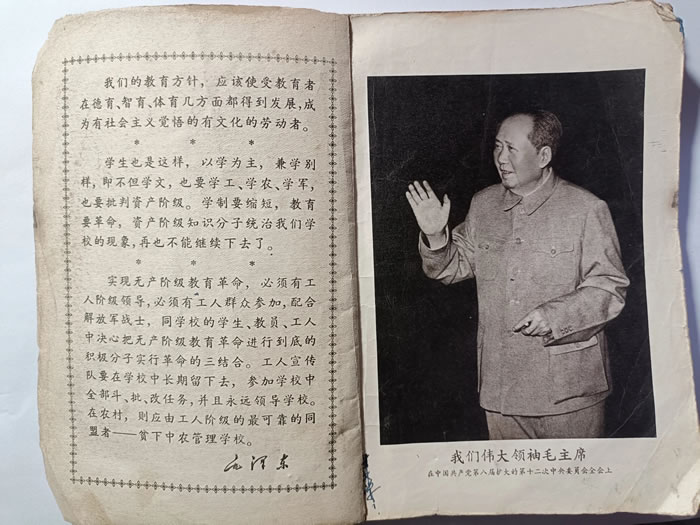 我们的教育方针，应该使受教育者
在德育、智育、体育几方面都得到发展，成
为有社会主义觉悟的有文化的劳动者。
* * *
学生也是这样，以学为主，兼学别
样，即不但学文，也要学工、学农、学军，
也要批判资产阶级。学制要缩短，教育
要革命，资产阶级知识分子统治我们学
校的现象，再也不能继续下去了。
* * *
实现无产阶级教育革命，必须有工
人阶级领导，必须有工人群众参加，配合
解放军战士，同学校的学生、教员、工人
中决心把无产阶级教育革命进行到底的
积极分子实行革命的三结合。工人宣传
队要在学校中长期留下去，参加学校中
全部斗、批、改任务，并且永远领导学校。
在农村，则应由工人阶级的最可靠的同
盟者——贫下中农管理学校。
毛泽东
我们伟大领袖毛主席
在中国共产党第八届扩大的第十二次中央委员会全会上